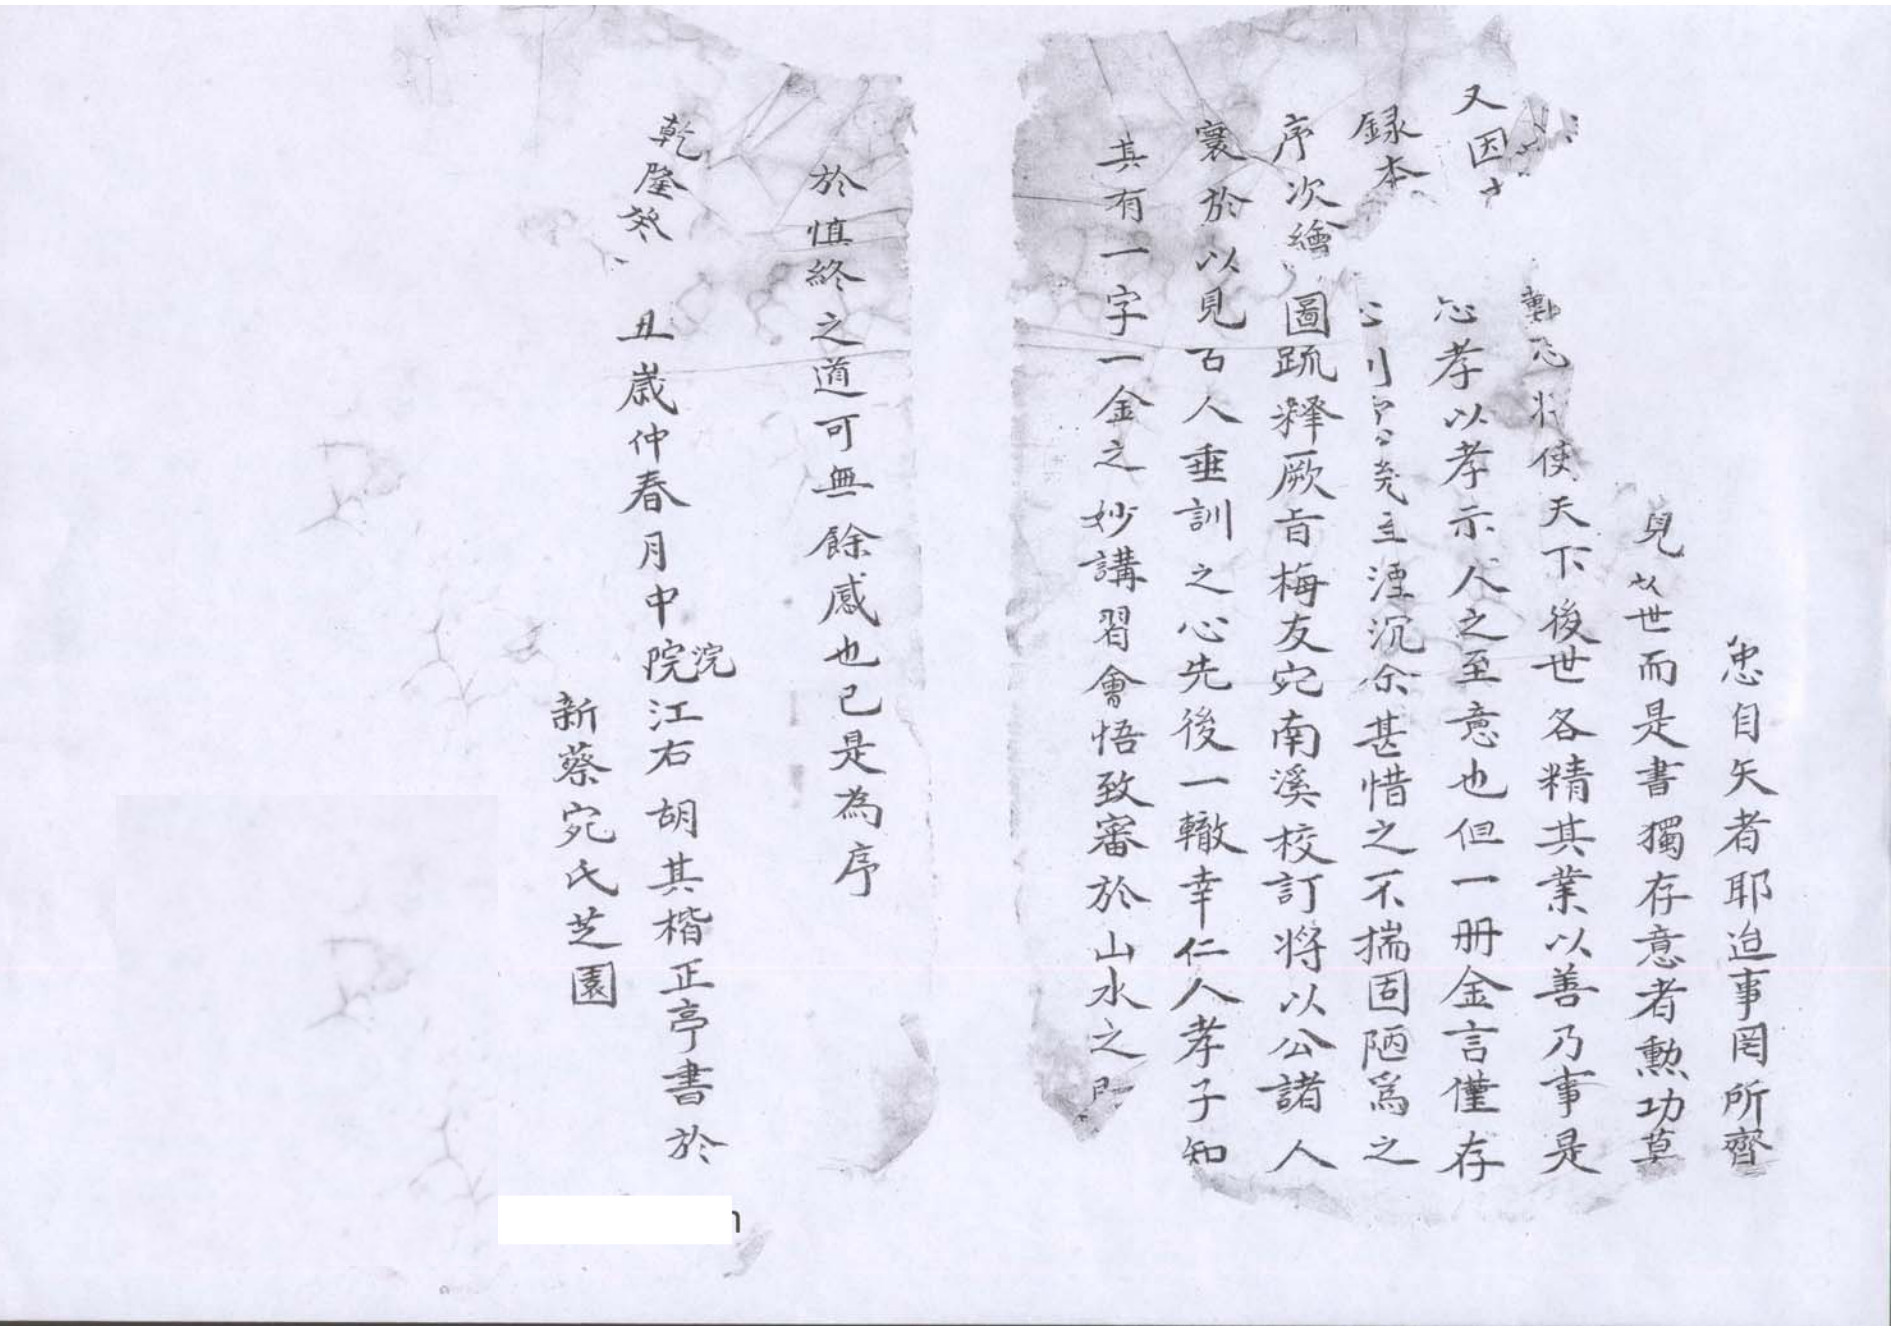 忠自矢者耶迨事罔所齊
見世而是書獨存意者勲功
使天下後世各精其業以善乃事是
又因心孝以孝示人之至意也但一册金言僅存
録本湮沉余甚惜之不揣固陋爲之
序次繪圖疏釋厥旨梅友宛南溪校訂將以公諸人
寰於以見古人垂訓之心先後一轍幸仁人孝子知
其有一字一金之妙講習會悟致審於山水之
於慎終之道可無餘感也已是為序
乾隆丑歲仲春月中浣院江右胡其楷正亭書於
新蔡宛氏芝園